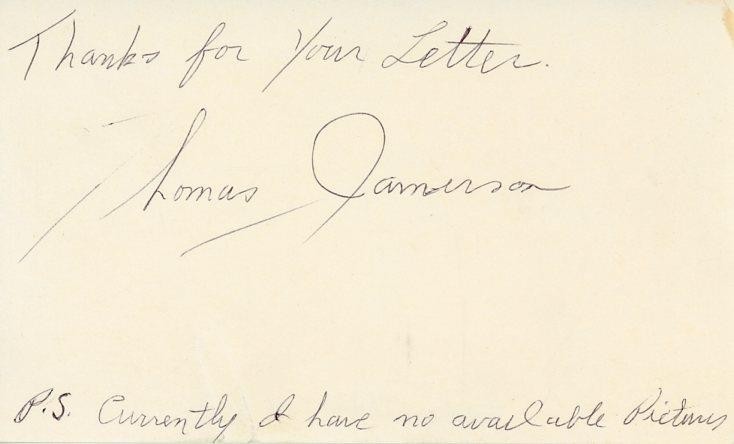 Thanks for Your Letter.
Thomas Jamerson
P.S. Currently I have no available Pictures